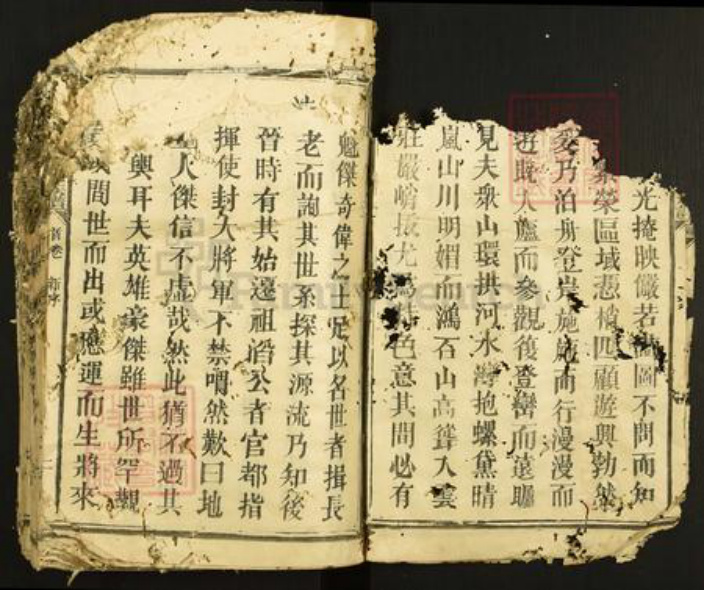 光掩映儼若圖不問而知
榮區域憑檣四顧遊興勃然
爰乃泊舟登岸施施而行漫漫而
遊既入廬而參觀復登巒而遠矚
見夫衆山環拱河水灣抱螺黛晴
嵐山川明媚而鴻石山高聳入雲
莊嚴峭拔尤色意其間必有
魁傑奇偉之士足以名世者揖長
老而詢其世系探其源流乃知後
晉時有其始遷祖滔公者官都指
揮使封大將軍不禁喟然歎曰地
人傑信不虛哉然此猶不過其
興耳夫英雄豪傑雖世所罕觀
間世而出或應運而生將來
首卷